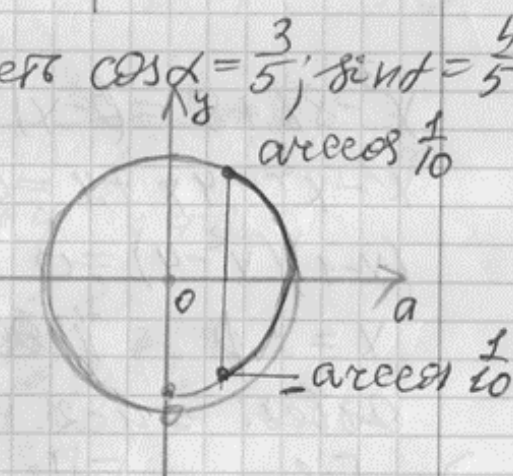 еть cos α = 3/5; sin α = 4/5
y
arccos 1/10
0
a
- arccos 1/10